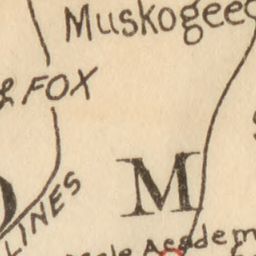 Muskogee
& FOX
M
LINES
Academ